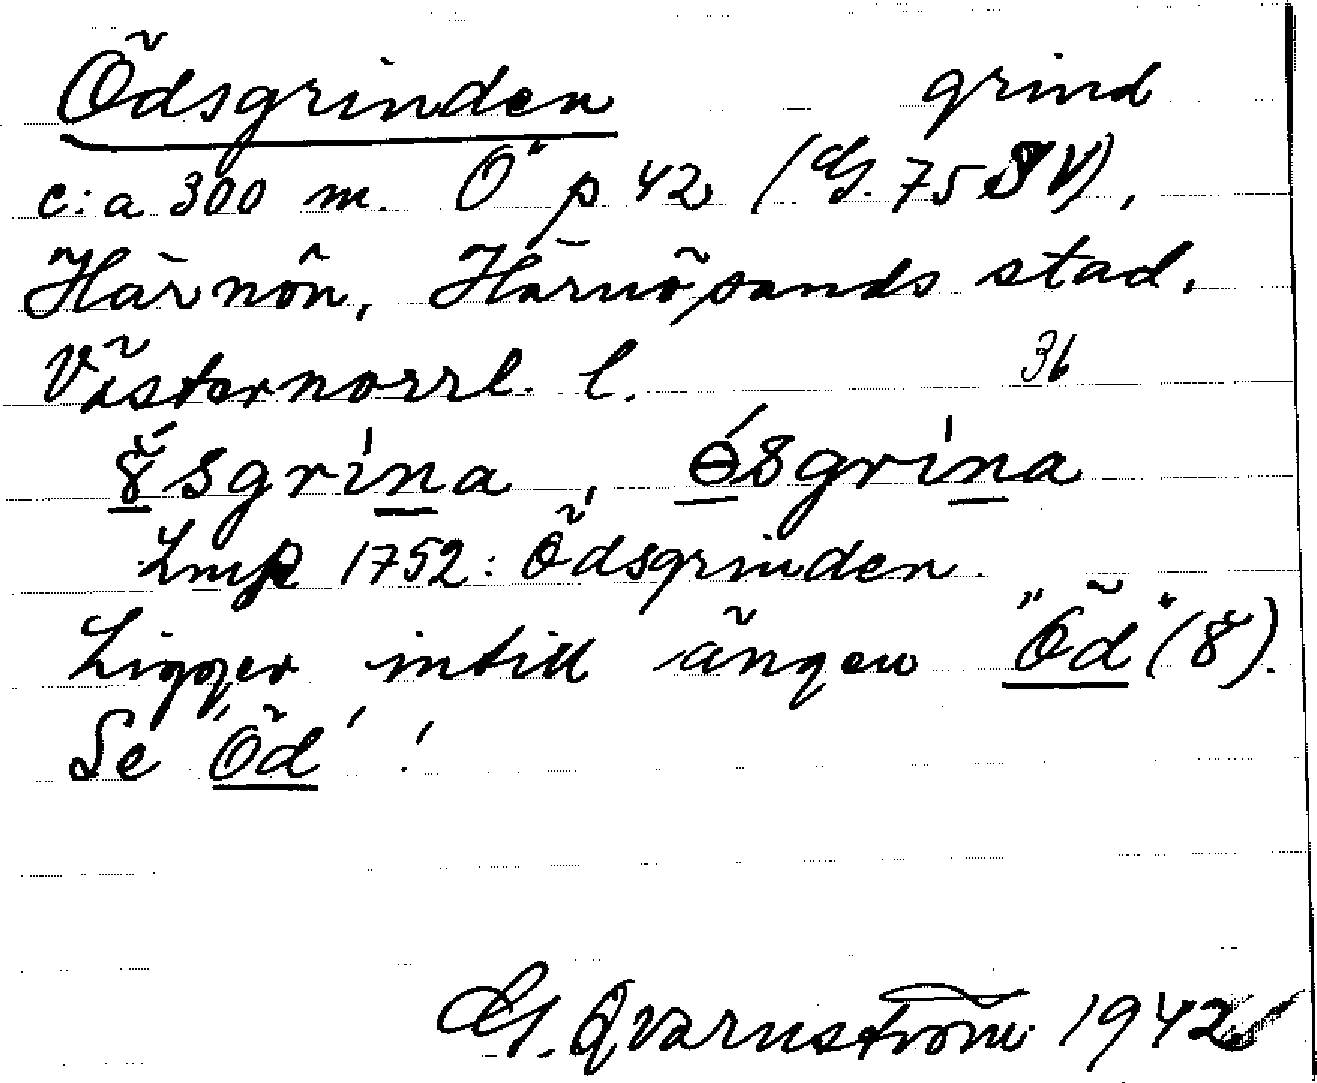 Ödsgrinden grind
c:a 300 m. Ö p 42 (G. 75 SV),
Härnön, Härnösands stad,
Västernorrl. l. 36
8́sgrìna, ɵ́sgrìna
Lmp 1752: Ödsgrinden.
Ligger intill ängen "Öd" (8).
Se 'Öd'!
G. Qvarnström 1942